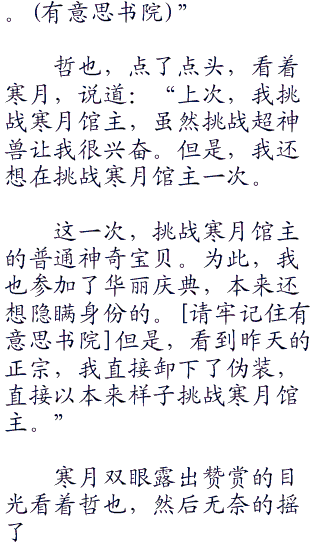 。(有意思书院)”
哲也，点了点头，看着
寒月，说道：“上次，我挑
战寒月馆主，虽然挑战超神
兽让我很兴奋。但是，我还
想在挑战寒月馆主一次。
这一次，挑战寒月馆主
的普通神奇宝贝。为此，我
也参加了华丽庆典，本来还
想隐瞒身份的。[请牢记住有
意思书院]但是，看到昨天的
正宗，我直接卸下了伪装，
直接以本来样子挑战寒月馆
主。”
寒月双眼露出赞赏的目
光看着哲也，然后无奈的摇
了